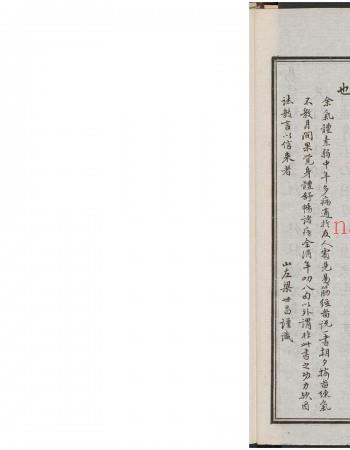 也
余氣體素弱中年多病適於友人處見易筋經圖説一書朝夕按圖練氣
不數月間果覺身體舒暢諸疾全消年切八旬以外謂非此書之功力歟因
誌數言以信來者
山左梁世昌謹識